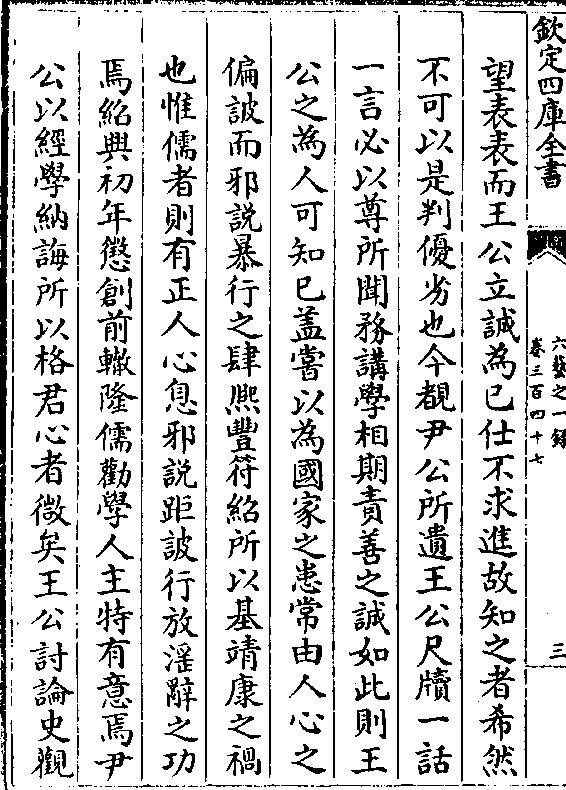 欽定四庫全書
六藝之一録
卷三百四十七
三
望表表而王公立誠為己仕不求進故知之者希然
不可以是判優劣也今覩尹公所遺王公尺牘一話
一言必以尊所聞務講學相期責善之誠如此則王
公之為人可知已盖嘗以為國家之患常由人心之
偏詖而邪説暴行之肆熈豐符紹所以基靖康之禍
也惟儒者則有正人心息邪説距詖行放滛辭之功
焉紹興初年懲創前轍隆儒勸學人主特有意焉尹
公以經學納誨所以格君心者微矣王公討論史觀